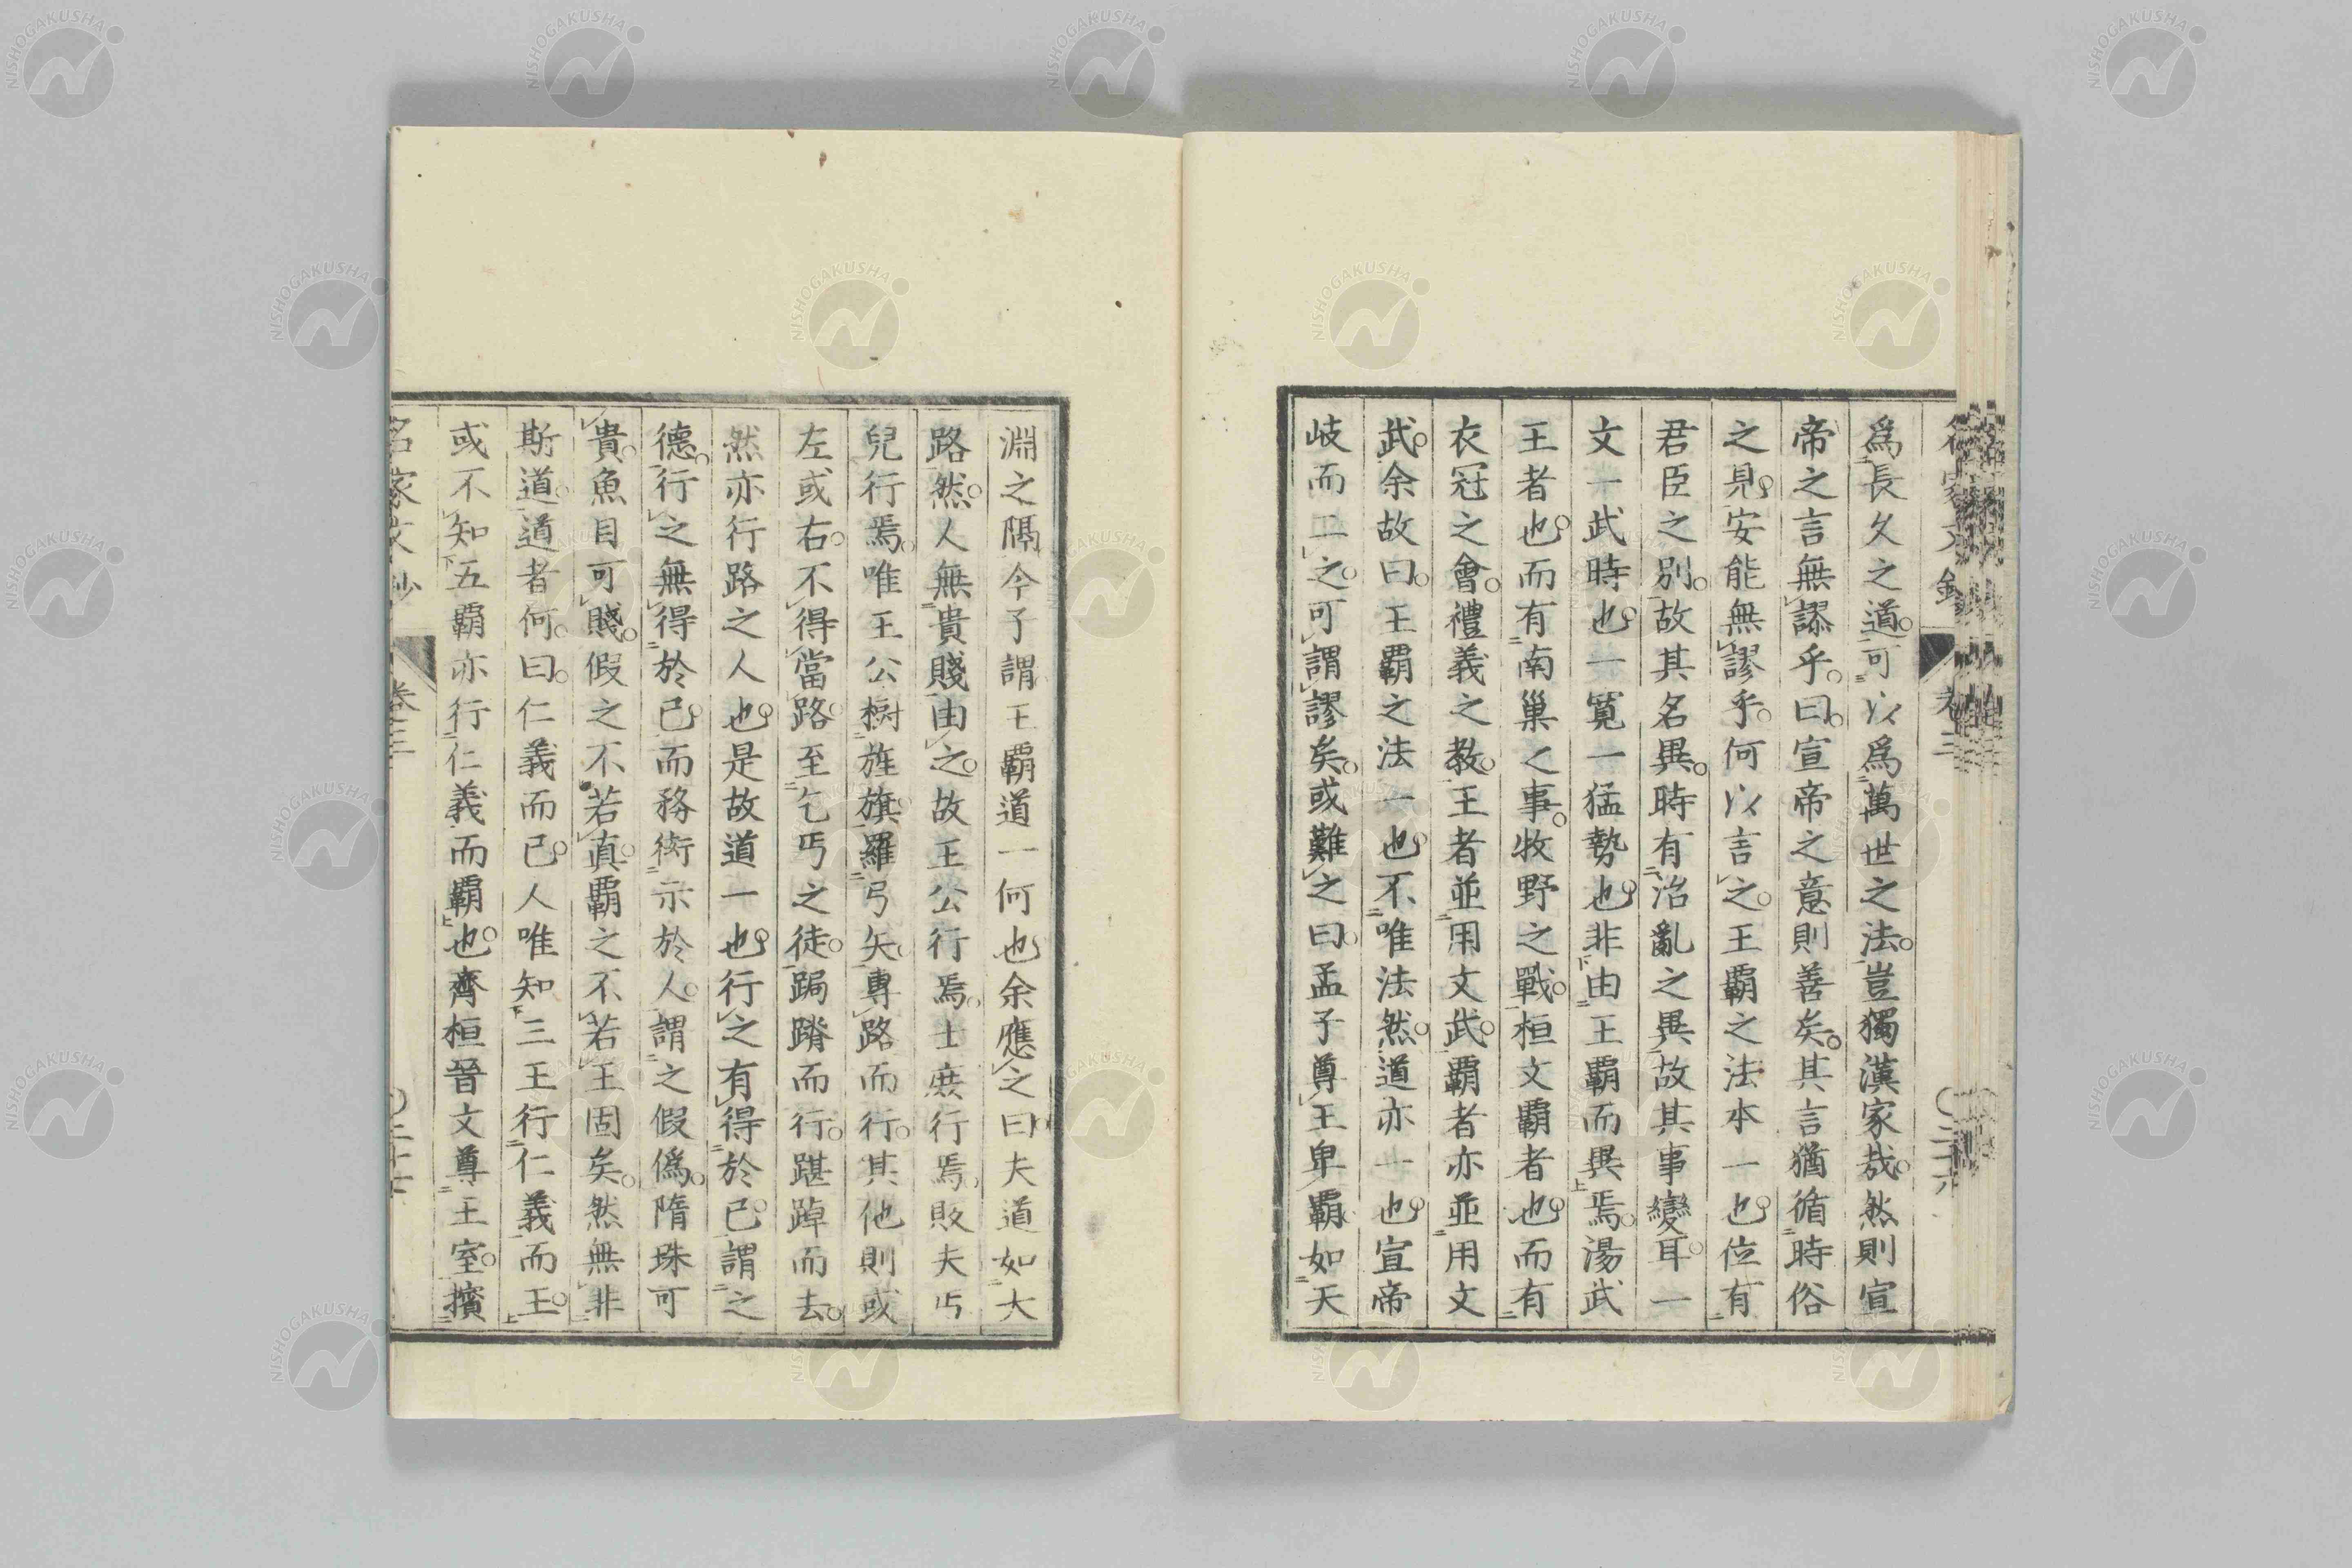 爲長久之道可以爲萬世之法豈獨漢家哉然則宣
帝之言無謬乎曰宣帝之意則善矣其言猶循時俗
之見安能無謬乎何以言之王覇之法本一也位有
君臣之別故其名異時有治亂之異故其事變耳一
文一武時也一寬一猛勢也非由王覇而異焉湯武
王者也而有南巢之事牧野之戰桓文覇者也而有
衣冠之會禮義之教王者並用文武覇者亦並用文
武余故曰王覇之法一也不唯法然道亦一也宣帝
岐而二之可謂謬矣或難之曰孟子尊王卑覇如天
淵之隔今子謂王覇道一何也余應之曰夫道如大
路然人無貴賤由之故王公行焉士庶行焉販夫丐
兒行焉唯王公樹旌旗羅弓矢專路而行其他則或
左或右不得當路至乞丐之徒跼蹐而行踸踔而去
然亦行路之人也是故道一也行之有得於己謂之
德行之無得於己而務衒示於人謂之假僞隋珠可
貴魚目可賤假之不若真覇之不若王固矣然無非
斯道道者何曰仁義而已人唯知三王行仁義而王
或不知五覇亦行仁義而覇也齊桓晉文尊王室擯
名家文抄 卷三
NISHOGAKUSHA